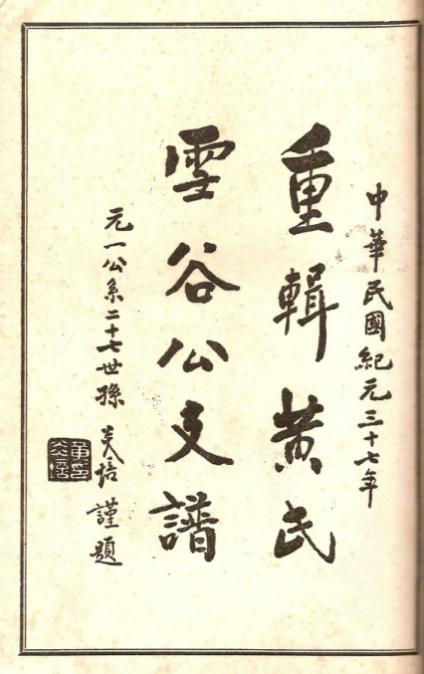 中華民國紀元三十七年
重輯黃氏
雲谷公支譜
元一公系二十七世孫 炎培謹題
黃炎培印